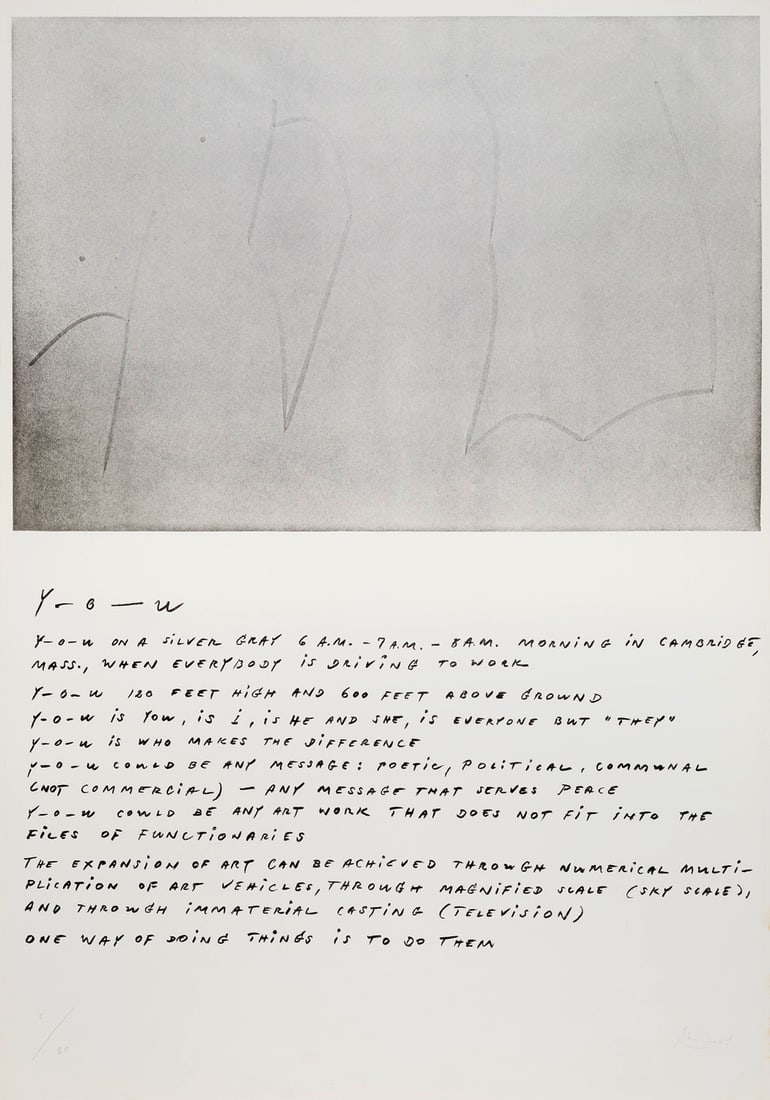 Y-O-U
Y-O-U ON A SILVER GRAY 6 A.M. - 7 A.M. - 8 A.M. MORNING IN CAMBRIDGE,
MASS., WHEN EVERYBODY IS DRIVING TO WORK
Y-O-U 120 FEET HIGH AND 600 FEET ABOVE GROWND
Y-O-U IS YOU, IS I, IS HE AND SHE, IS EVERYONE BUT "THEY"
Y-O-U IS WHO MAKES THE DIFFERENCE
Y-O-U COULD BE ANY MESSAGE: POETIC, POLITICAL, COMMUNAL
(NOT COMMERCIAL) - ANY MESSAGE THAT SERVES PEACE
Y-O-U COULD BE ANY ART WORK THAT DOES NOT FIT INTO THE
FILES OF FUNCTIONARIES
THE EXPANSION OF ART CAN BE ACHIEVED THROUGH NUMERICAL MULTI-
PLICATION OF ART VEHICLES, THROUGH MAGNIFIED SCALE (SKY SCALE),
AND THROUGH IMMATERIAL CASTING (TELEVISION)
ONE WAY OF DOING THINGS IS TO DO THEM